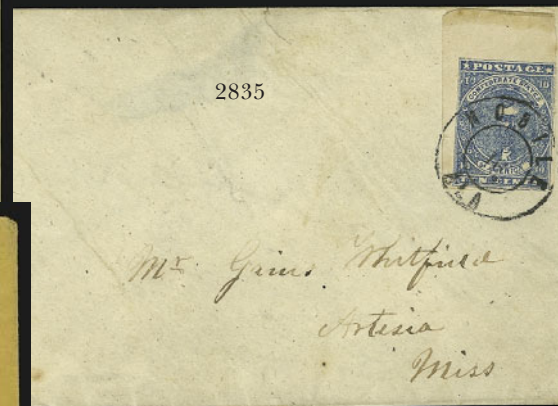 POSTAGE
CONFEDERATE STATES
TEN CENTS
MOBILE
ALA
2835
Mr Whitfield
Artesia
Miss